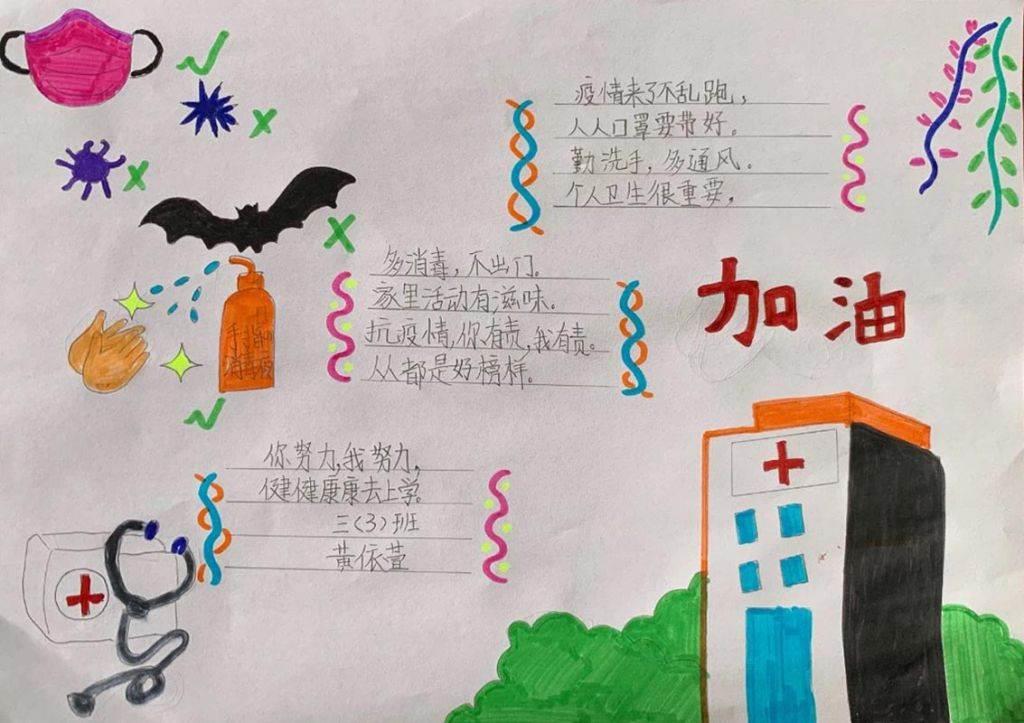 疫情来了不乱跑，
人人口罩要带好。
勤洗手，多通风。
个人卫生很重要，
多消毒，不出门。
家里活动有滋味。
抗疫情，你有责，我有责。
人人都是好榜样。
加油
手部
消毒液
你努力，我努力，
健健康康去上学。
三（3）班
黄依萱